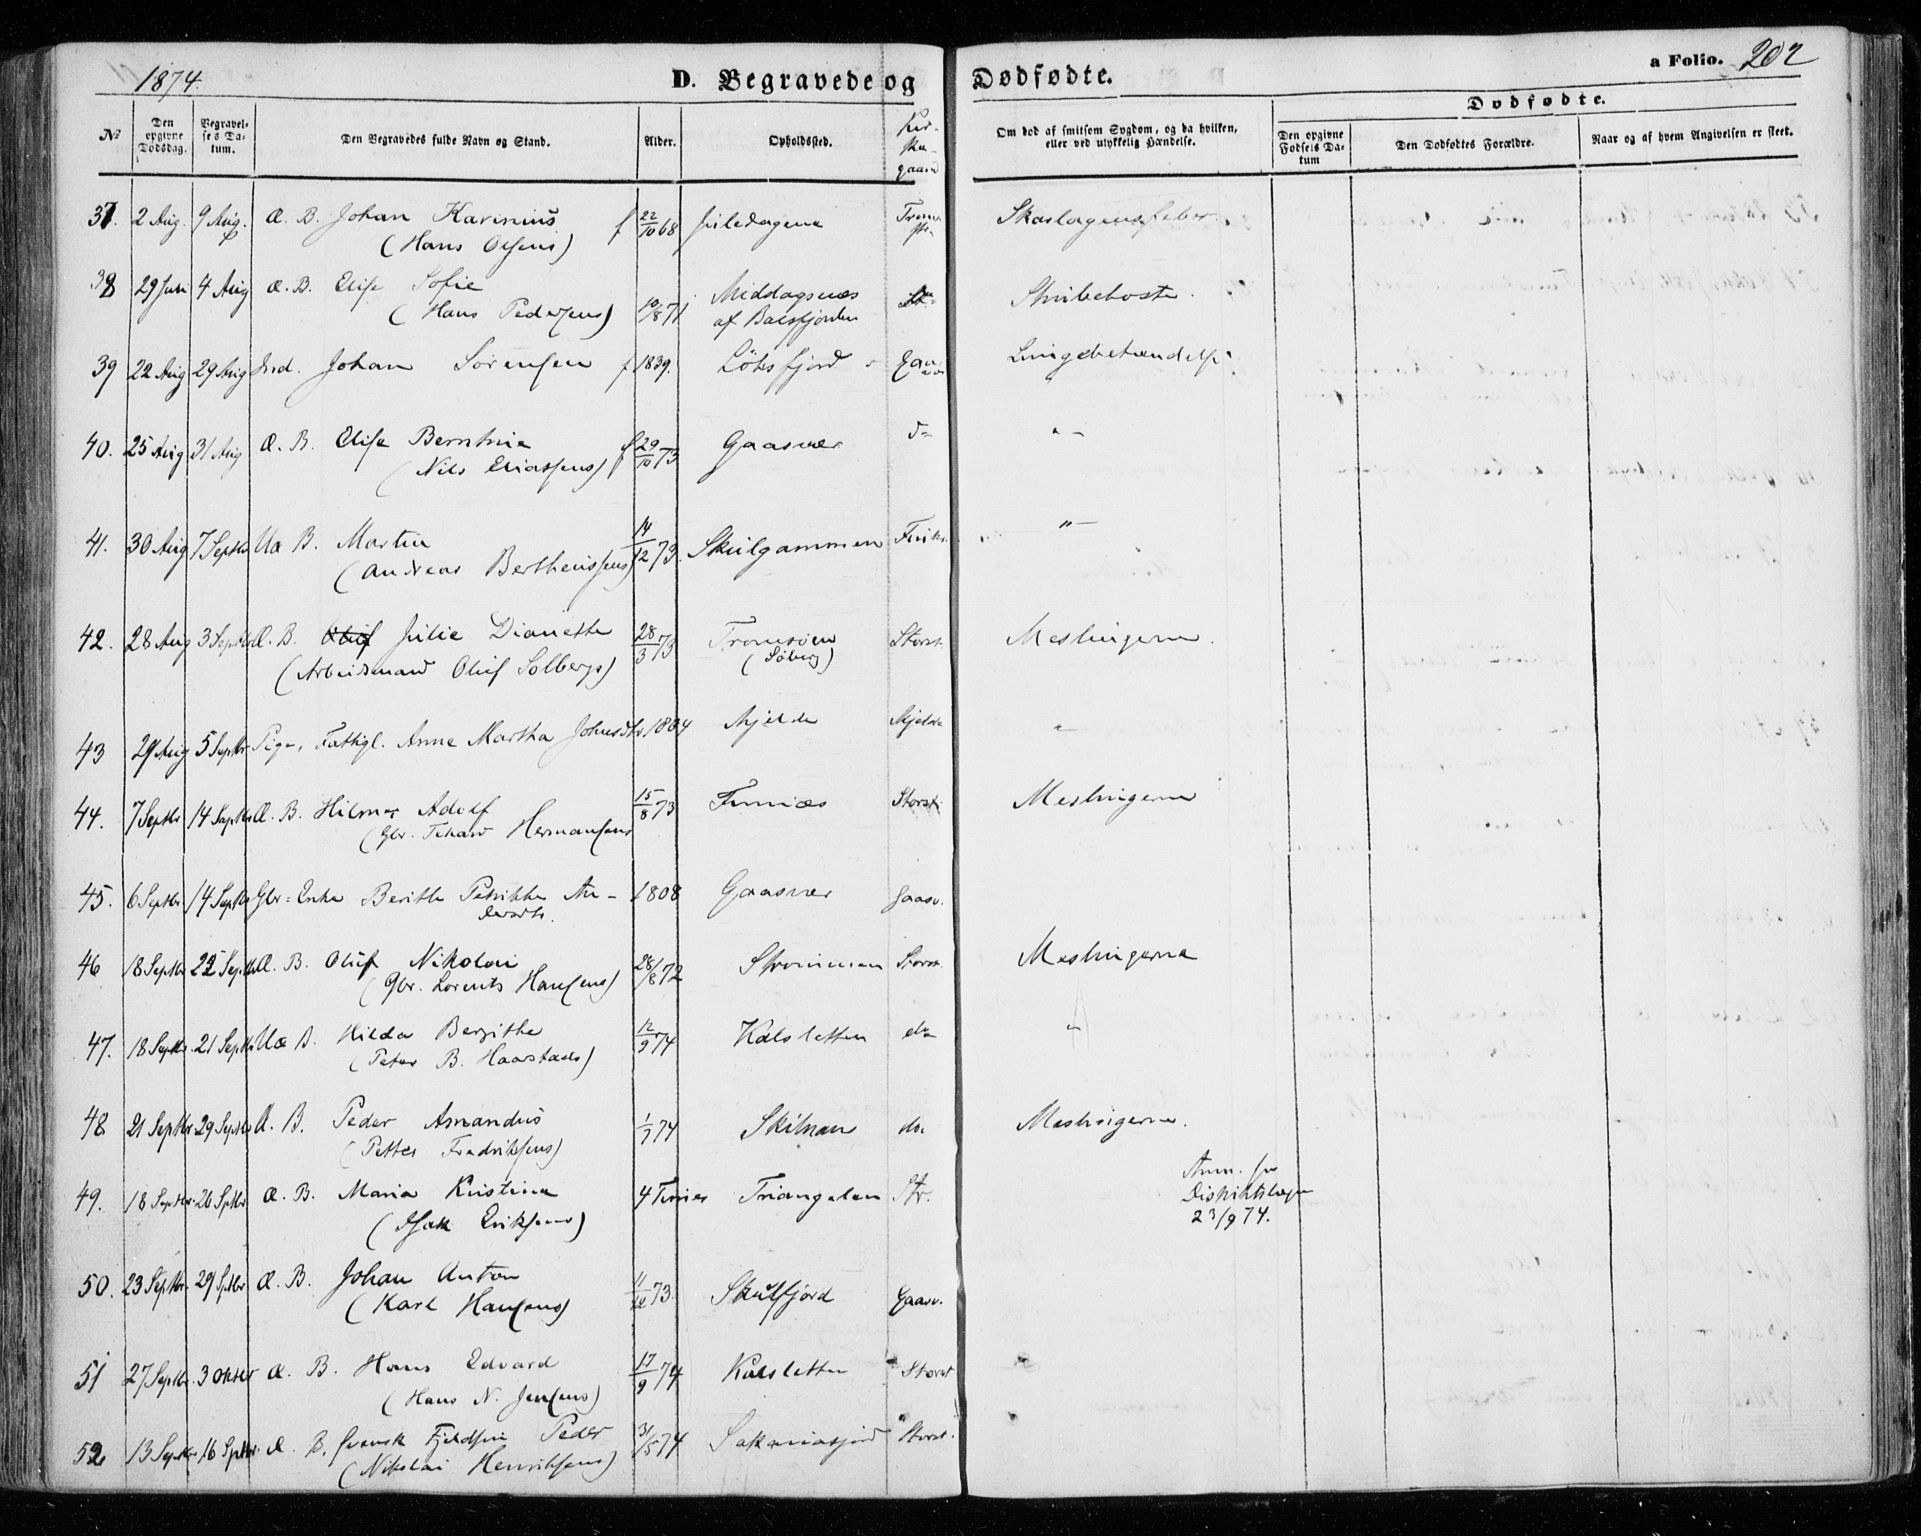 1874.
D. Begravede og Dødfødte.
a Folio. 202
No
Den opgivne Dødsdag.
Begravelses Datum.
Den Begravedes fulde Navn og Stand.
Alder.
Opholdssted.
Kirkegaard
Om død af smitsom Sygdom, og da hvilken, eller ved ulykkelig Hændelse.
Dødfødte.
Den opgivne Fødsels Datum
Den Dødfødtes Forældre.
Naar og af hvem Angivelsen er skeet.
37. 2 Aug. 9 Aug. Æ. B. Johan Karinius f 22/10 68 Skarlagensfeber
(Hans Olsens)
38 29 Juli 4 Aug Æ. B. Elise Sofie 10/8 71 Middagsnæs Strubehoste.
(Hans Pedersens) af Balsfjorden
39 22 Aug 29 Aug Ind. Johan Sørensen f 1839. Lungebetændelse
40. 25 Aug 31 Aug Æ. B. Elise Berntine f 29/10 73 Gaasvær do "-
(Nils Eliassens)
41. 30 Aug 7 Septbr Uæ B. Martin 14/12 73. Skulgammen "-
(Andreas Bertheussens)
42. 28 Aug 3 Septbr Æ. B. Oluf Julie Dianette 28/3 73 Tromsøen Storst. Meslingerne.
(Arbeidsmand Oluf Solbergs)
43 29 Aug 5 Septbr Pige, Fattigl. Anne Martha Johnsdtr 1804 Mjelde Mjelde "
44. 7 Septbr 14 Septbr Æ. B. Hilmar Adolf 15/8 73 Finnæs Storst. Meslingerne
Hermansens
45. 6 Septbr 14 Septbr Gbr-Enke Berithe Petrikke An- 1808 Gaasvær Gaasv.
dersdtr.
46 18 Septbr 22 Septbr Æ. B. Oluf Nikolai 28/8 72 Strømmen Storst. Meslingerne
(Gbr. Lorents Hansens)
47. 18 Septbr 21 Septbr Uæ B. Hilda Bergithe 12/9 74 Kalsletten do "
(Peter B. Haarstads)
48 21 Septbr 29 Septbr Æ. B. Peder Amandus 1/7 74 do Meslingerne.
(Petter Fredriksens)
49. 18 Septbr. 26 Sptbr. Æ. B. Maria Kristina 4 Timer Triangelen Str. Anm. fra
(Isak Eriksens) Distriktslægen
23/9 74.
50. 23 Septbr. 29 Sptbr Æ. B. Johan Anton 11/12 73. Skulsfjord Gaasv.
(Karl Hansens)
51 27 Septbr. 3 Oktbr Æ. B. Hans Edvard 17/9 74 Kalsletten Storst
(Hans N. Jensens)
52 13 Septbr. 16 Sptbr. Æ. B. svensk Fjeldfin Peder 31/5 74 Sakariasjord Storst.
(Nikolai Henriksens)